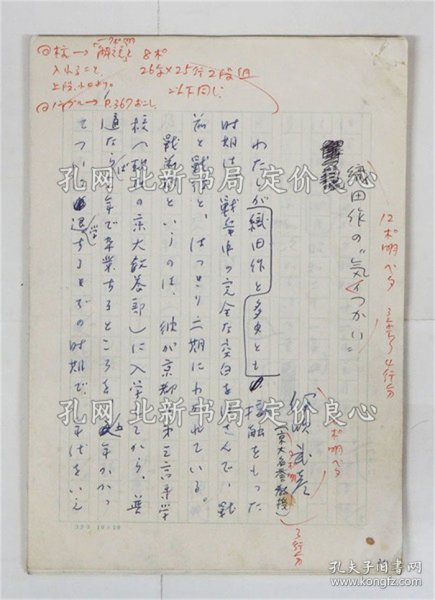 8ポ
入れること
26字×25行2段組
以下同じ
織田作の“気づかい”
12ポ明
4行分
(京大名誉教授)
3行分
わたしが織田作と多少とも接触をもった
時期は、戦争中の完全な空白をはさんで、戦
前と戦後と、はっきり二期にわかれている。
戦前というのは、彼が京都の第三高等学
校(現在の京大教養部)に入学してから、普
通なら三年で卒業するところを五年かかっ
て
退学するまでの時期で、年代をいえ
孔网 北新书局 定价良心
孔网 北新书局 定价良心
孔网 北新书局 定价良心
孔夫子旧书网
www.kongfz.com